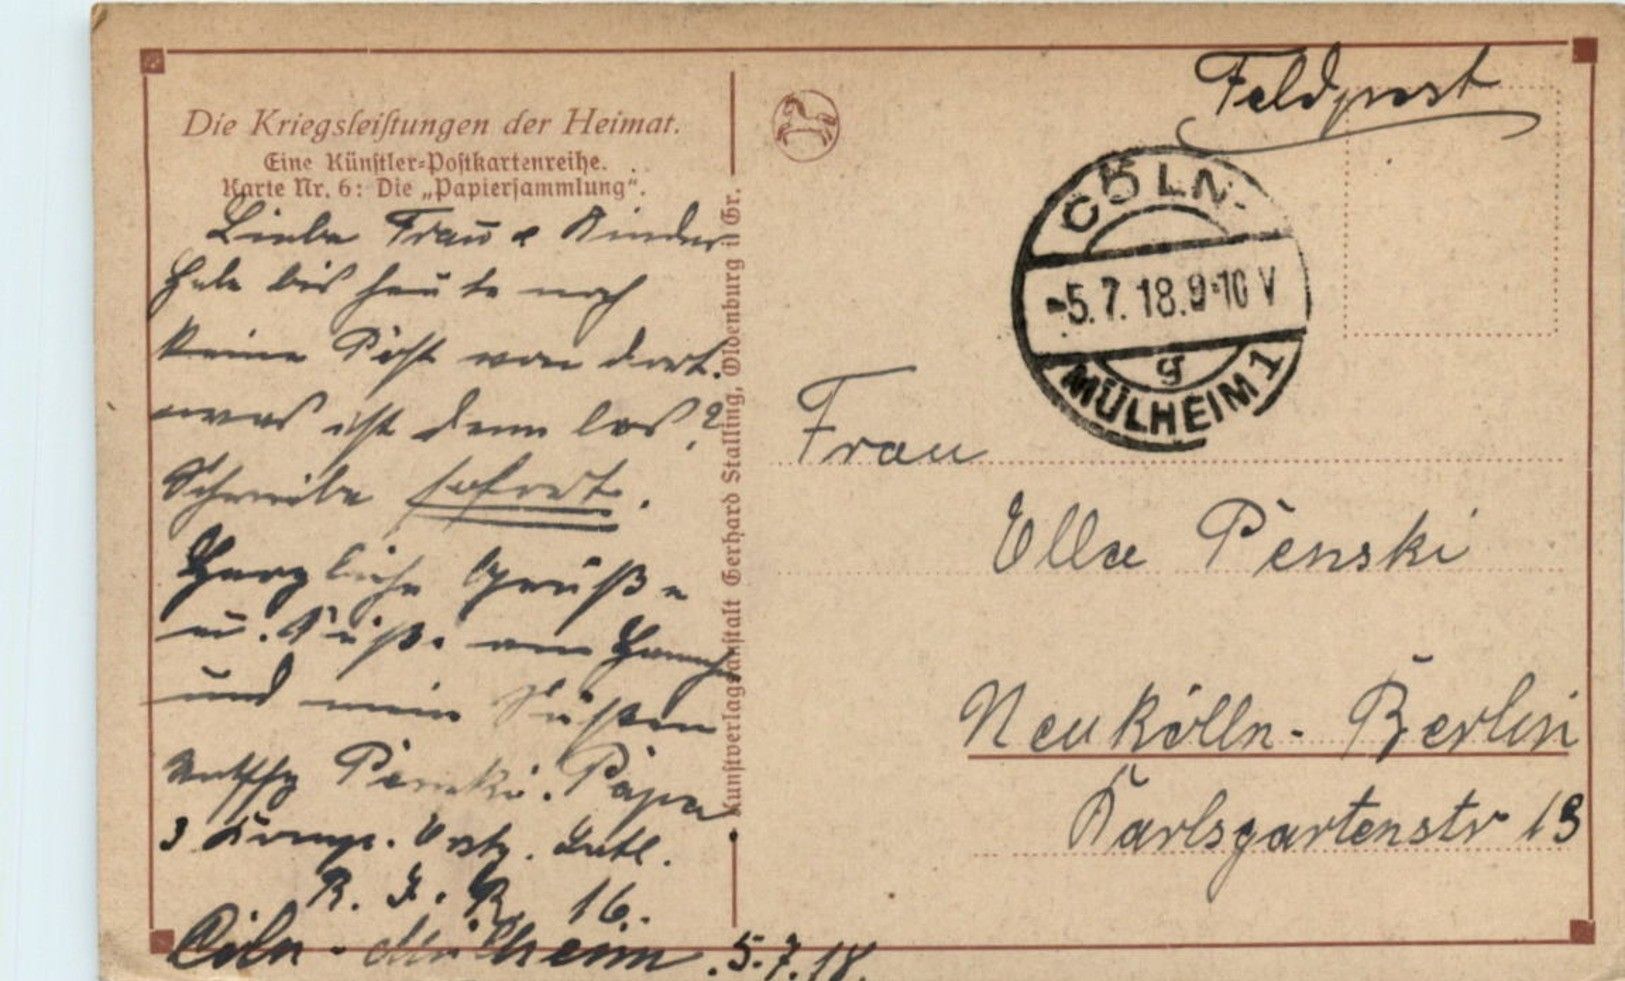 Die Kriegsleistungen der Heimat.
Eine Künstler-Postkartenreihe.
Karte Nr. 6: Die „Papiersammlung“.
Liebe Frau u Kinder
Habe bis heute noch
keine Post von dort.
was ist denn los?
Schreibe sofort.
Herzliche Grüße
u. Küße an
und mein Süßen
Penski. Papa
3 Komp. Ers. Batl.
R. I. R. 16.
Cöln-Mülheim. 5.7.18.
Kunstverlagsanstalt Gerhard Stalling, Oldenburg i. Gr.
Feldpost
CÖLN-
-5.7.18.9-10 V
g
MÜLHEIM 1
Frau
Ella Penski
Neukölln-Berlin
Karlsgartenstr 13